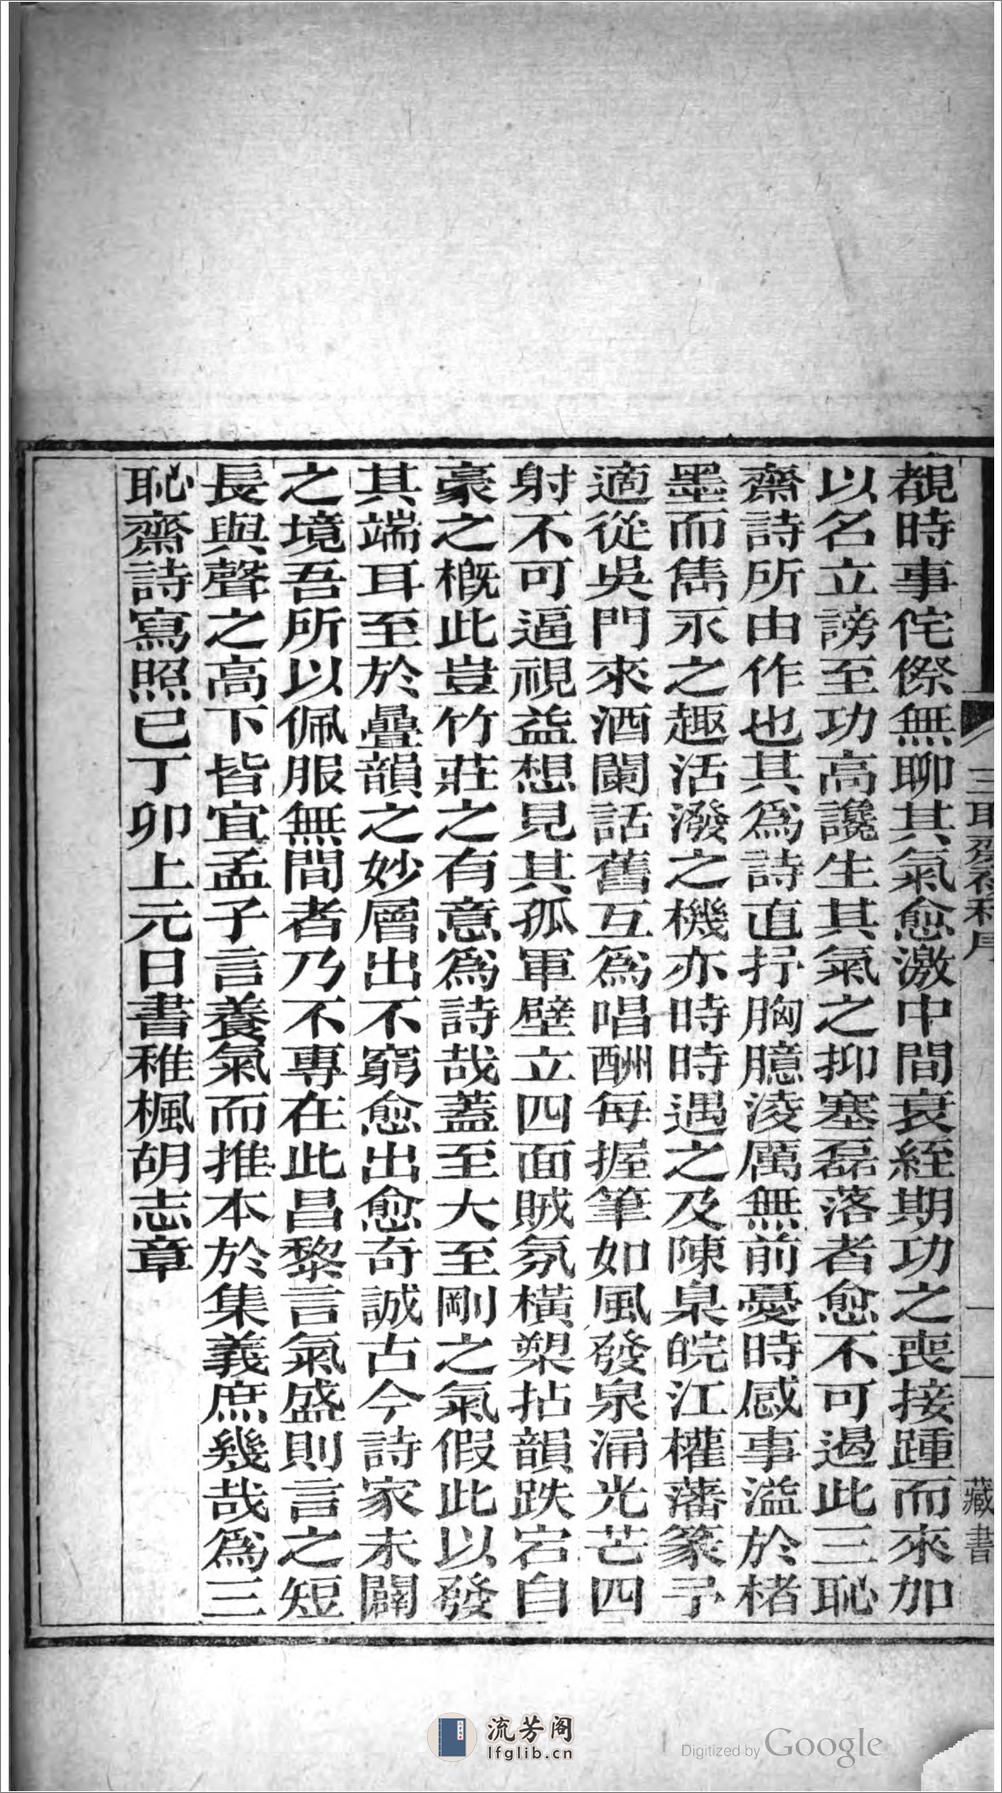 覩時事侘傺無聊其氣愈激中間衰絰期功之喪接踵而來加
以名立謗至功高讒生其氣之抑塞磊落者愈不可遏此三恥
齋詩所由作也其爲詩直抒胸臆淩厲無前憂時感事溢於楮
墨而雋永之趣活潑之機亦時時遇之及陳臬皖江權藩篆予
適從吳門來酒闌話舊互爲唱酬每握筆如風發泉涌光芒四
射不可逼視益想見其孤軍壁立四面賊氛橫槊拈韻跌宕自
豪之槪此豈竹莊之有意爲詩哉蓋至大至剛之氣假此以發
其端耳至於疊韻之妙層出不窮愈出愈奇誠古今詩家未闢
之境吾所以佩服無間者乃不專在此昌黎言氣盛則言之短
長與聲之高下皆宜孟子言養氣而推本於集義庶幾哉爲三
恥齋詩寫照已丁卯上元日書稚楓胡志章
三恥齋初稿序
一
藏書
流芳阁
lfglib.cn
Digitized by Google